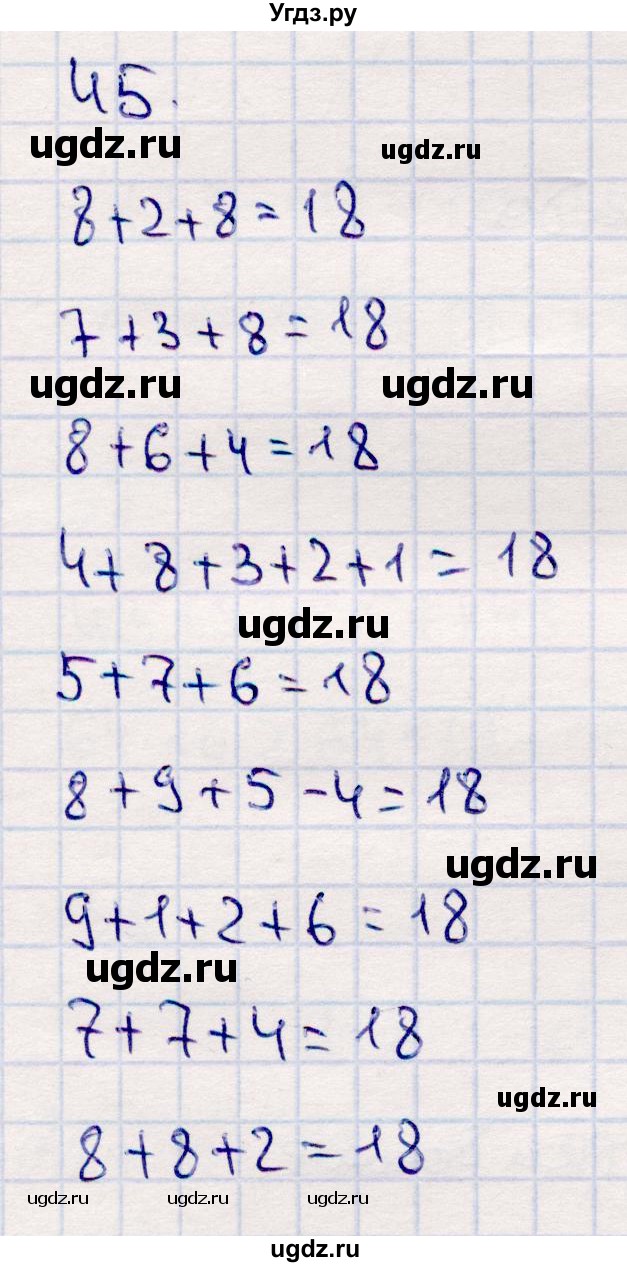 Угдз.ру
45.
ugdz.ru ugdz.ru
8+2+8=18
7+3+8=18
ugdz.ru ugdz.ru
8+6+4=18
4+8+3+2+1=18
ugdz.ru
5+7+6=18
8+9+5-4=18
ugdz.ru
9+1+2+6=18
ugdz.ru
7+7+4=18
ugdz.ru
8+8+2=18
ugdz.ru ugdz.ru ugdz.ru
ugdz.ru